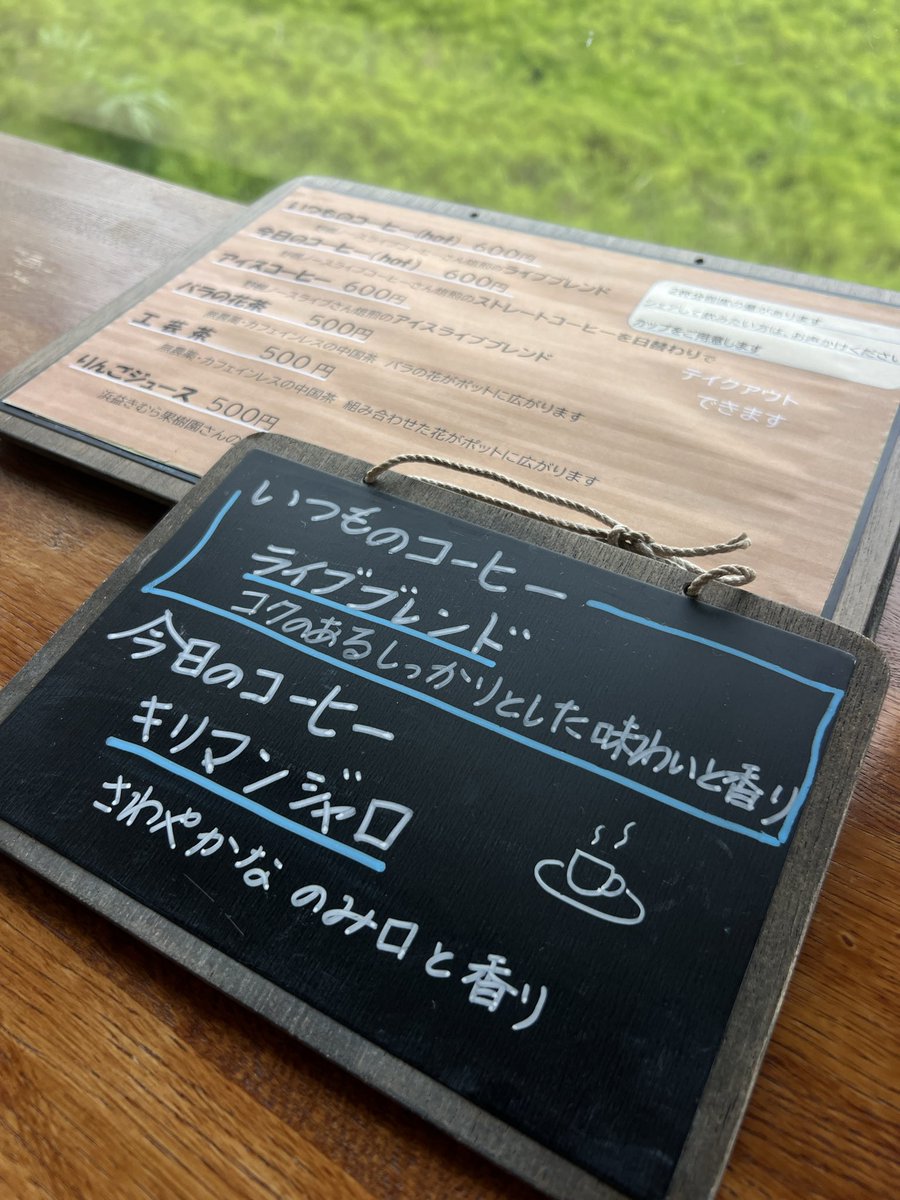 いつものコーヒー(hot) 600円
ノースライブコーヒーさん焙煎のライブブレンド
今日のコーヒー(hot) 600円
ノースライブコーヒーさん焙煎のストレートコーヒーを日替わりで
アイスコーヒー 600円
ノースライブさん焙煎のアイスライブブレンド
バラの花茶 500円
無農薬・カフェインレスの中国茶 バラの花がポットに広がります
工芸茶 500円
無農薬・カフェインレスの中国茶 組み合わせた花がポットに広がります
りんごジュース 500円
浜益きむら果樹園さんの
2杯分程度の量があります
シェアして飲みたい方は、お声かけください
カップをご用意します
テイクアウト
できます
いつものコーヒー
ライブブレンド
コクのあるしっかりとした味わいと香り
今日のコーヒー
キリマンジャロ
さわやかなのみ口と香り